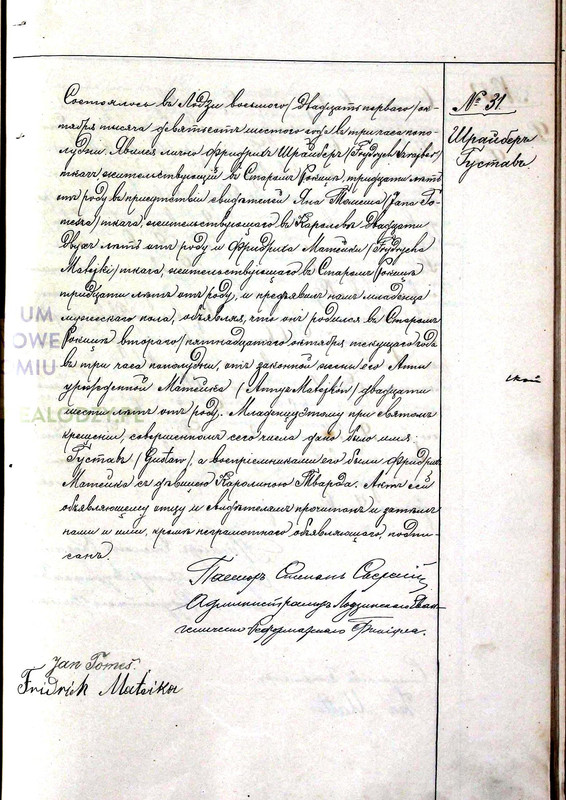 № 31.
Шрайберъ
Густавъ.
Состоялось въ Лодзи восьмого/двадцать перваго/ок-
тября тысяча девятьсотъ шестого года въ три часа попо-
лудни. Явился лично Фридрихъ Шрайберъ/Frydrych
ткачъ, жительствующій въ Старомъ Рокицѣ, тридцати лѣтъ
отъ роду въ присутствіи свидѣтелей Яна Томеша/Jana To-
mesza/ткача, жительствующаго въ Каролевѣ двадцати
двухъ лѣтъ отъ роду и Фридриха Матейки/Frydrycha
Matejki/ткача, жительствующаго въ Старомъ Рокицѣ
тридцати лѣтъ отъ роду, и предъявилъ намъ младенца
мужескаго пола, объявляя, что онъ родился въ Старомъ
Рокицѣ второго/пятнадцатаго октября текущаго года
въ три часа пополудни, отъ законной жены его Анны
урожденной Матейка/Anny z Matejków/двадцати
шести лѣтъ отъ роду. Младенцу этому при святомъ
крещеніи, совершенномъ сего числа дано было имя:
Густавъ/Gustaw/, а воспріемниками его были Фридрихъ
Матейка съ дѣвицею Каролиною Тварда. Актъ сей
объявляющему отцу и свидѣтелямъ прочитанъ и затѣмъ
нами и ими, кромѣ неграмотнаго объявляющаго, подпи-
санъ.
Пасторъ
Администраторъ Лодзинскаго Еван-
гелическо Реформатскаго Филіала.
Jan Tomeš.
Fridrich Mateika
UM
OWE
MIU
EALODZI.PL